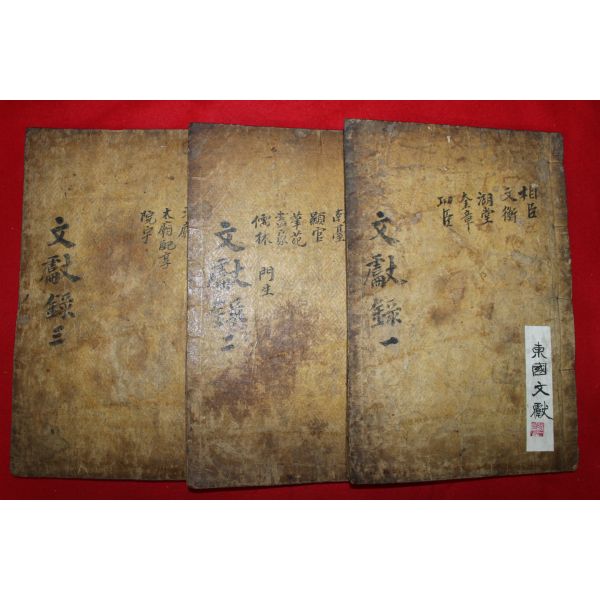 相臣
文衡
湖堂
金章
功臣
文獻錄一
東國文獻
南臺
顯官
筆苑
畵家
儒林 門生
文献錄二
太廟配享
院宇
文獻錄三